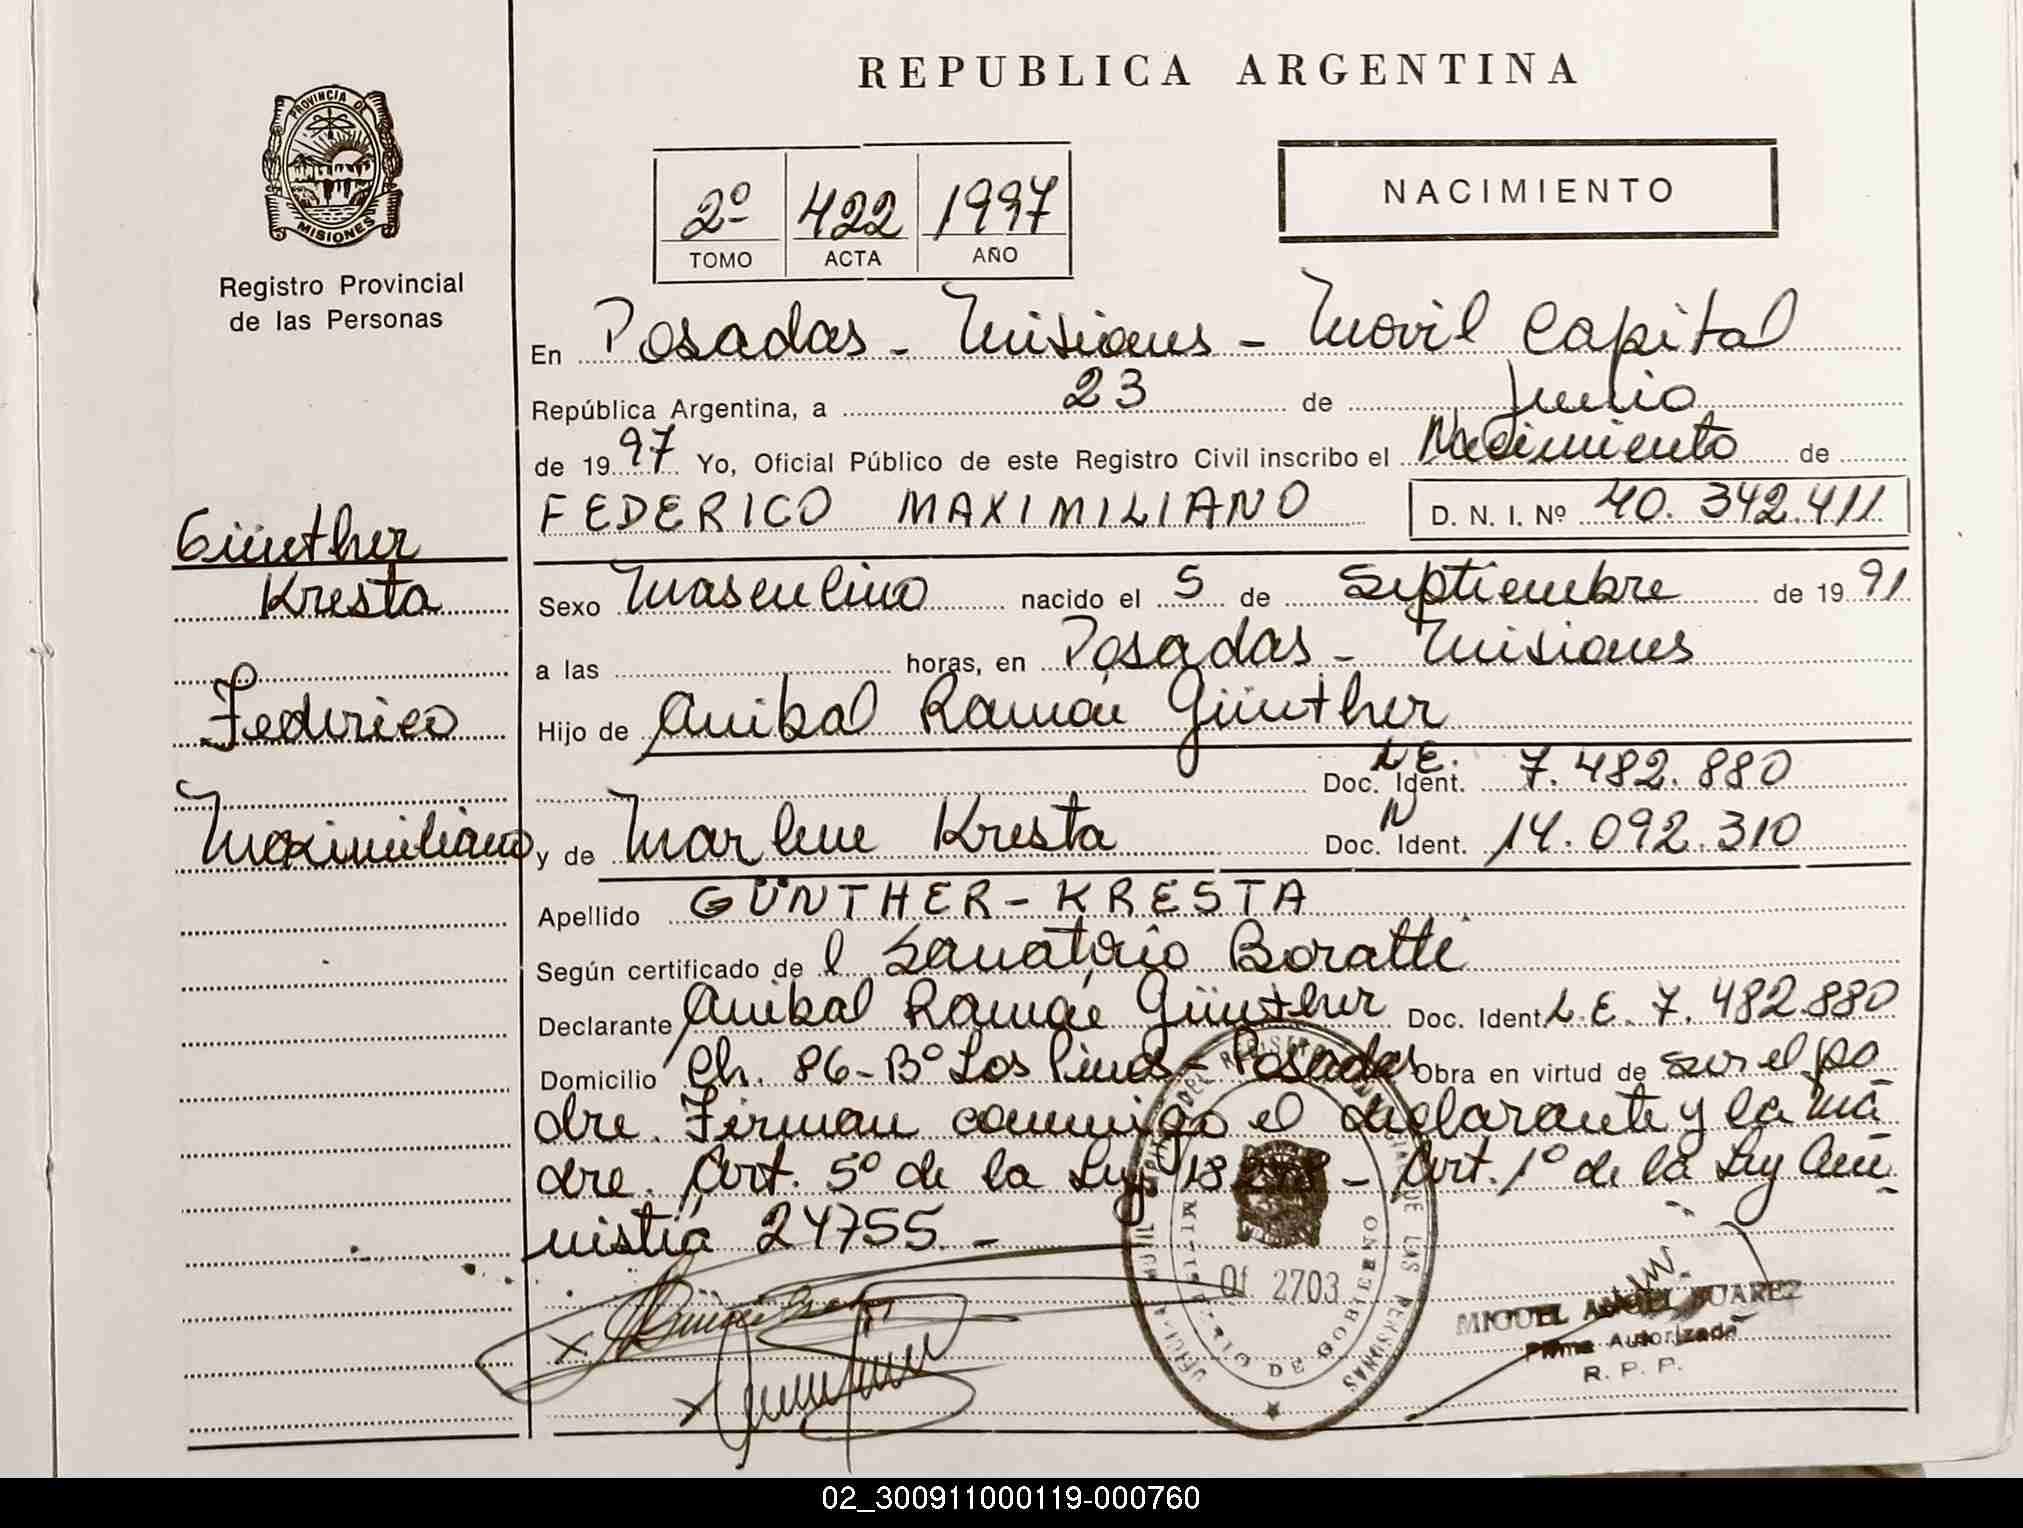 REPUBLICA ARGENTINA
PROVINCIA DE
MISIONES
Registro Provincial
de las Personas
2º 422 1997
TOMO ACTA AÑO
NACIMIENTO
En Posadas - Misiones - Movil Capital
República Argentina, a 23 de Junio
de 1997 Yo, Oficial Público de este Registro Civil inscribo el Nacimiento de
FEDERICO MAXIMILIANO D. N. I. Nº 40.342.411
Günther
Kresta
Federico
Maximiliano
Sexo Masculino nacido el 5 de Septiembre de 1991
a las horas, en Posadas - Misiones
Hijo de Anibal Ramón Günther
L.E.
Doc. Ident. 7.482.880
y de Marlene Kresta Doc. Ident. 14.092.310
Apellido GÜNTHER - KRESTA
Según certificado de l Sanatorio Boratti
Declarante Anibal Ramón Günther Doc. Ident L.E. 7.482.880
Domicilio Ch. 86 - Bº Los Pinos - Posadas Obra en virtud de ser el pa
dre. Firman conmigo el declarante y la ma
dre. Art. 5º de la Ley 18.248 - Art. 1º de la Ley Am
nistia 24755. -
Of 2703
MINISTERIO DE GOBIERNO
MIGUEL ANGEL SUAREZ
Firma Autorizada
R. P. P.
02_300911000119-000760